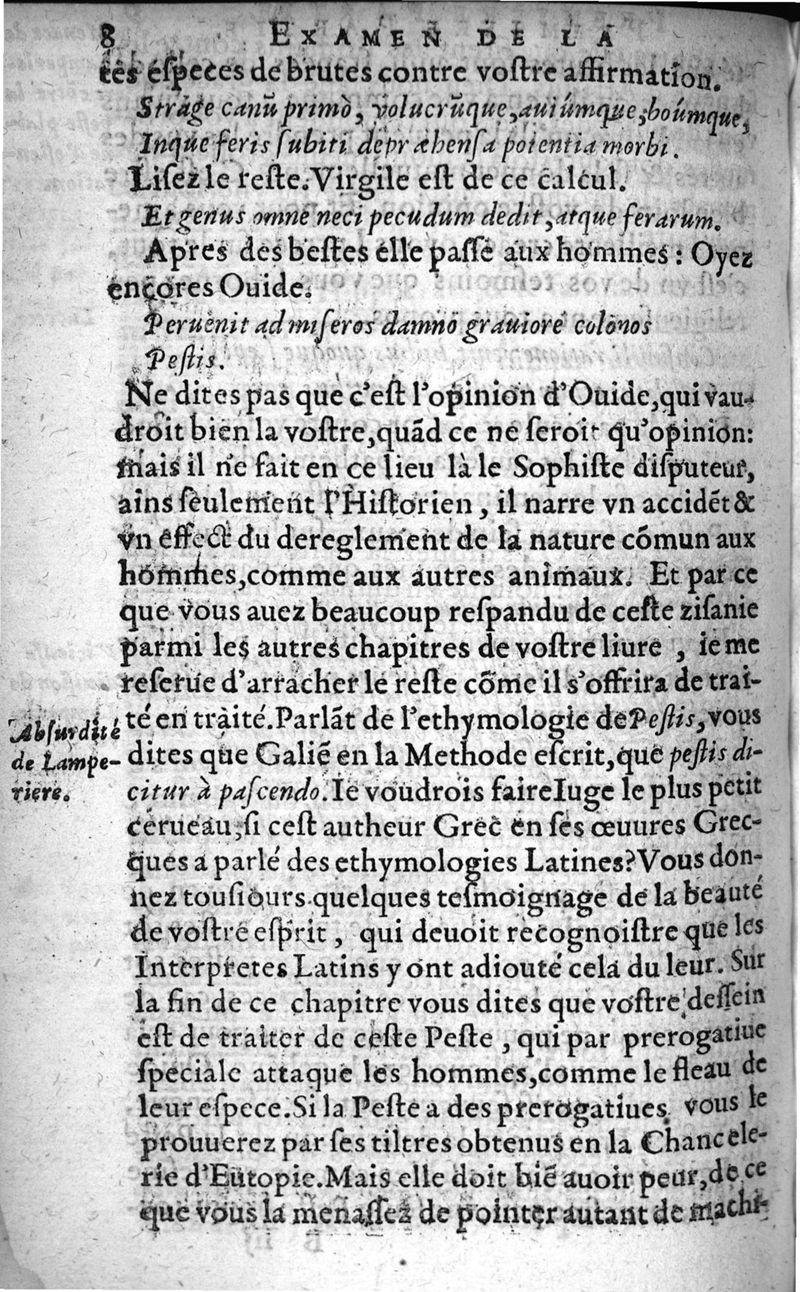 8 EXAMEN DE LA
tes eſpeces de brutes contre voſtre affirmation.
Strage canũ primò, volucrũque, auiúmque, boúmque,
Inque feris ſubiti depræhenſa potentia morbi.
Liſez le reſte. Virgile eſt de ce calcul.
Et genus omne neci pecudum dedit, atque ferarum.
Apres des beſtes elle paſſe aux hommes : Oyez
encores Ouide.
Peruenit ad miſeros damno grauiore colonos
Peſtis.
Ne dites pas que c'eſt l'opinion d'Ouide, qui vau-
droit bien la voſtre, quãd ce ne ſeroit qu'opinion:
mais il ne fait en ce lieu là le Sophiſte diſputeur,
ains ſeulement l'Hiſtorien, il narre vn accidẽt &
vn effect du dereglement de la nature cõmun aux
hommes, comme aux autres animaux. Et par ce
que vous auez beaucoup reſpandu de ceſte ziſanie
parmi les autres chapitres de voſtre liure, ie me
reſerue d'arracher le reſte cõme il s'offrira de trai-
té en traité. Parlãt de l'ethymologie de Peſtis, vous
dites que Galiẽ en la Methode eſcrit, que peſtis di-
citur à paſcendo. Ie voudrois faire Iuge le plus petit
cerueau, ſi ceſt autheur Grec en ſes œuures Grec-
ques a parlé des ethymologies Latines? Vous don-
nez touſiours quelques teſmoignage de la beauté
de voſtre eſprit, qui deuoit recognoiſtre que les
Interpretes Latins y ont adiouté cela du leur. Sur
la fin de ce chapitre vous dites que voſtre deſſein
eſt de traiter de ceſte Peſte, qui par prerogatiue
ſpeciale attaque les hommes, comme le fleau de
leur eſpece. Si la Peſte a des prerogatiues, vous le
prouuerez par ſes tiltres obtenus en la Chancele-
rie d'Eutopie. Mais elle doit biẽ auoir peur, de ce
que vous la menaſſez de pointer autant de machi-
Abſurdité
de Lampe-
riere.